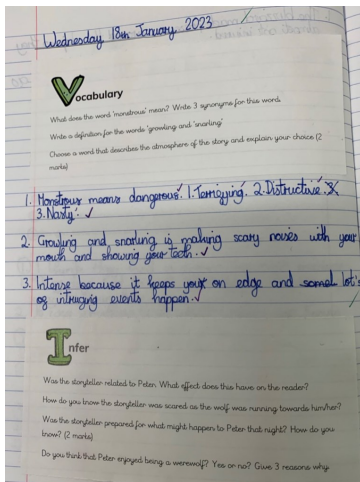 Wednesday 18th January 2023
Vocabulary
What does the word 'monstrous' mean? Write 3 synonyms for this word.
Write a definition for the words 'growling and 'snarling'
Choose a word that describes the atmosphere of the story and explain your choice (2
marks)
1. Monstrous means dangerous. 1. Terrifying. 2. Distructive. 3.
3. Nasty.
2. Growling and snarling is making scary noises with your
mouth and showing your teeth.
3. Intense because it keeps you on edge and lot's
of intruging events happen.
Infer
Was the storyteller related to Peter. What effect does this have on the reader?
How do you know the storyteller was scared as the wolf was running towards him/her?
Was the storyteller prepared for what might happen to Peter that night? How do you
know? (2 marks)
Do you think that Peter enjoyed being a werewolf? Yes or no? Give 3 reasons why